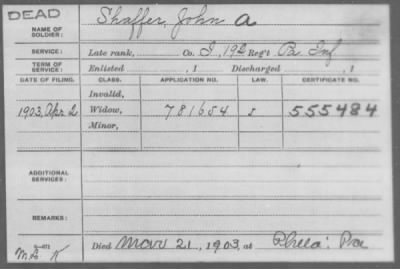 DEAD
NAME OF SOLDIER: Shaffer, John A
SERVICE: Late rank, Co. I, 192 Reg't Pa. Inf
TERM OF SERVICE: Enlisted , 1 Discharged , 1
DATE OF FILING. CLASS. APPLICATION NO. LAW. CERTIFICATE NO.
Invalid,
1903, Apr. 2 Widow, 781654 555484
Minor,
ADDITIONAL SERVICES:
REMARKS:
Died Mar 21, 1903, at Phila: Pa